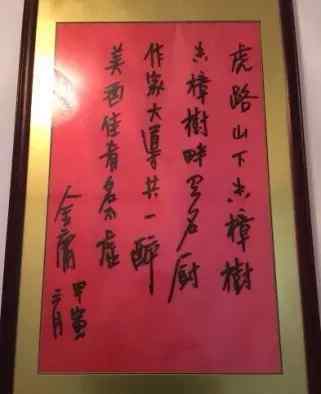 虎路山下香樟樹
香樟樹畔名厨
作家大導共一醉
美酒佳肴名不虛
金庸
甲寅
三月